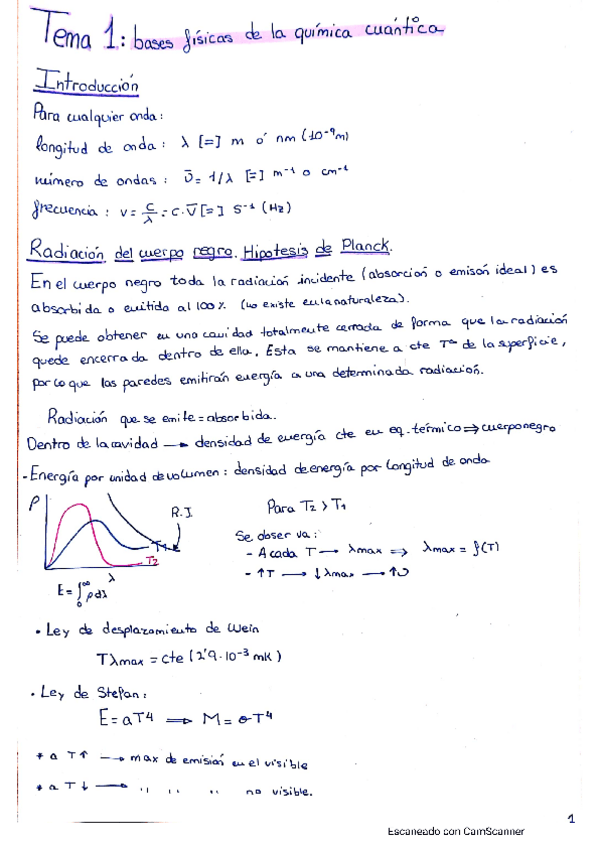 Tema 1: bases físicas de la química cuántica
Introducción
Para cualquier onda:
longitud de onda: λ [=] m ó nm (10⁻⁹m)
número de ondas: ῡ = 1/λ [=] m⁻¹ o cm⁻¹
frecuencia: ν = c/λ = c·ῡ [=] s⁻¹ (Hz)
Radiación del cuerpo negro. Hipotesis de Planck.
En el cuerpo negro toda la radiación incidente (absorción o emisón ideal) es
absorbida o emitida al 100% (no existe en la naturaleza).
Se puede obtener en una cavidad totalmente cerrada de forma que la radiación
quede encerrada dentro de ella. Esta se mantiene a cte Tª de la superficie,
por lo que las paredes emitirán energía a una determinada radiación.
Radiación que se emite = absorbida.
Dentro de la cavidad → densidad de energía cte en eq. térmico ⇒ cuerpo negro
- Energía por unidad de volumen: densidad de energía por longitud de onda
ρ
R.J
T₁
T₂
λ
E = ∫₀^∞ ρ dλ
Para T₂ > T₁
Se observa:
- A cada T → λmax ⇒ λmax = f(T)
- ↑T → ↓λmax → ↑υ
· Ley de desplazamiento de Wein
Tλmax = cte (2'9·10⁻³ mK)
· Ley de Stefan:
E = aT⁴ ⇒ M = σT⁴
* a T↑ → max de emisión en el visible
* a T↓ → " " " no visible.
1
Escaneado con CamScanner